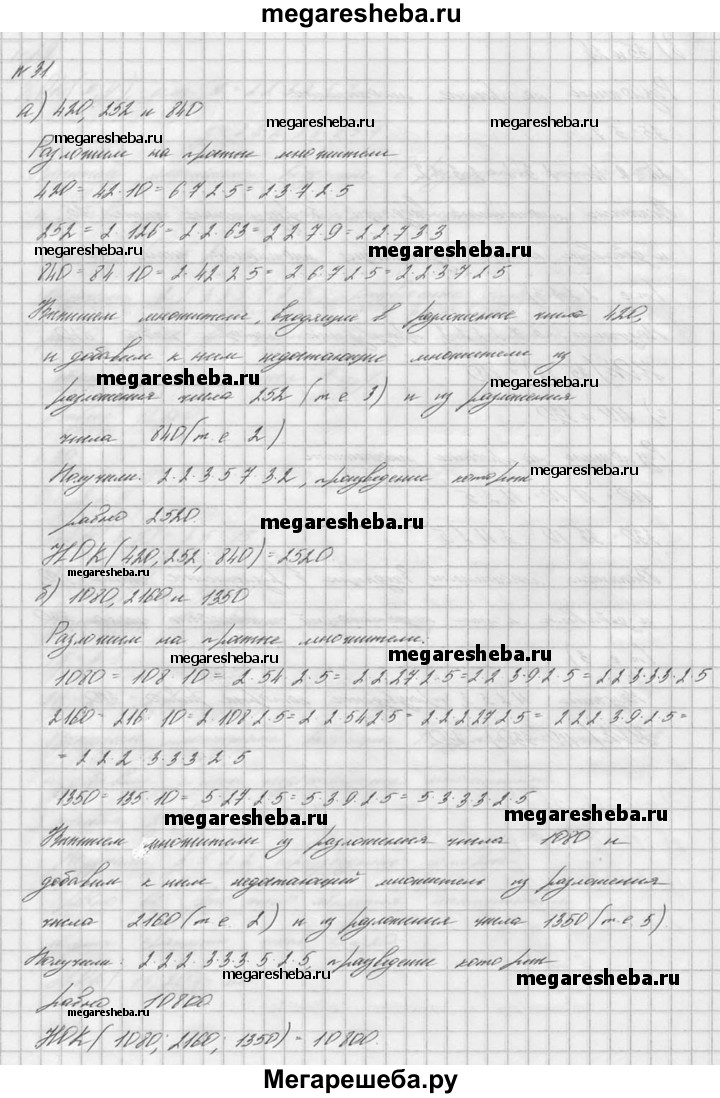 megaresheba.ru
№ 31
а) 420, 252 и 840
megaresheba.ru megaresheba.ru
megaresheba.ru
Разложим на простые множители
420 = 42·10 = 6·7·2·5 = 2·3·7·2·5
252 = 2·126 = 2·2·63 = 2·2·7·9 = 2·2·7·3·3
megaresheba.ru megaresheba.ru
840 = 84·10 = 2·42·2·5 = 2·6·7·2·5 = 2·2·3·7·2·5
Выпишем множители, входящие в разложение числа 420,
и добавим к ним недостающие множители из
megaresheba.ru megaresheba.ru
разложения числа 252 (т.е. 3) и из разложения
числа 840 (т.е. 2)
Получили: 2·2·3·5·7·3·2, произведение которых
megaresheba.ru
равно 2520.
megaresheba.ru
НОК(420, 252, 840) = 2520
megaresheba.ru
б) 1080, 2160 и 1350
Разложим на простые множители:
megaresheba.ru megaresheba.ru
1080 = 108·10 = 2·54·2·5 = 2·2·27·2·5 = 2·2·3·9·2·5 = 2·2·3·3·3·2·5
2160 = 216·10 = 2·108·2·5 = 2·2·54·2·5 = 2·2·2·27·2·5 = 2·2·2·3·9·2·5 =
= 2·2·2·3·3·3·2·5
1350 = 135·10 = 5·27·2·5 = 5·3·9·2·5 = 5·3·3·3·2·5
megaresheba.ru megaresheba.ru
Выпишем множители из разложения числа 1080 и
добавим к ним недостающий множитель из разложения
числа 2160 (т.е. 2) и из разложения числа 1350 (т.е. 5)
Получили: 2·2·2·3·3·3·5·2·5, произведение которых
megaresheba.ru megaresheba.ru
равно 10800
megaresheba.ru
НОК(1080; 2160; 1350) = 10800.
Мегарешеба.ру